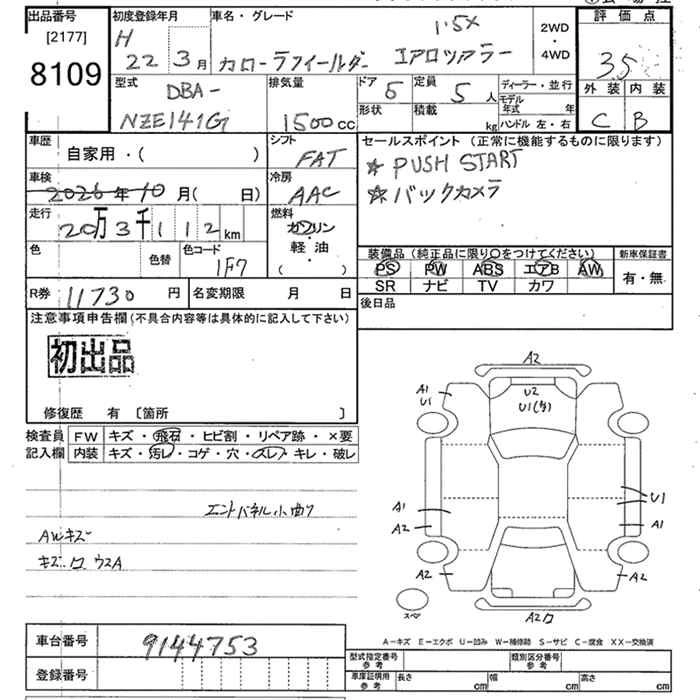 出品番号
[2177]
8109
初度登録年月
H
22 3月
車名・グレード
1.5X
カローラフィールダー エアロツアラー
2WD
・
4WD
評価点
3.5
外装 内装
C B
型式
DBA-
NZE141G
排気量
1500cc
ドア 5
形状
定員 5人
積載 kg
ディーラー・並行
モデル年式 年
ハンドル 左・右
車歴
自家用・( )
シフト
FAT
車検
2026年10月( 日)
冷房
AAC
走行
20万3千112km
燃料
ガソリン
・
軽・油
( )
色
色替
色コード
1F7
R券 11730円
名変期限 月 日
セールスポイント (正常に機能するものに限ります)
☆ PUSH START
☆ バックカメラ
装備品 (純正品に限り〇をつけてください)
新車保証書
PS PW ABS エアB AW
SR ナビ TV カワ
有・無
後日品
注意事項申告欄 (不具合内容等は具体的に記入して下さい)
初出品
修復歴 有 〔箇所 〕
検査員記入欄
FW キズ・飛石・ヒビ割・リペア跡・×要
内装 キズ・汚レ・コゲ・穴・スレ・キレ・破レ
エンドパネル小曲り
AWキズ
A2
A1
U1
U2
U1
A1
A2
U1
A1
A2
A2
A2
スペア
車台番号 9144753
登録番号
A－キズ E－エクボ U－凹み W－補修跡 S－サビ C－腐食 XX－交換済
型式指定番号 参考
類別区分番号 参考
車庫証明用 参考
長さ cm
幅 cm
高さ cm